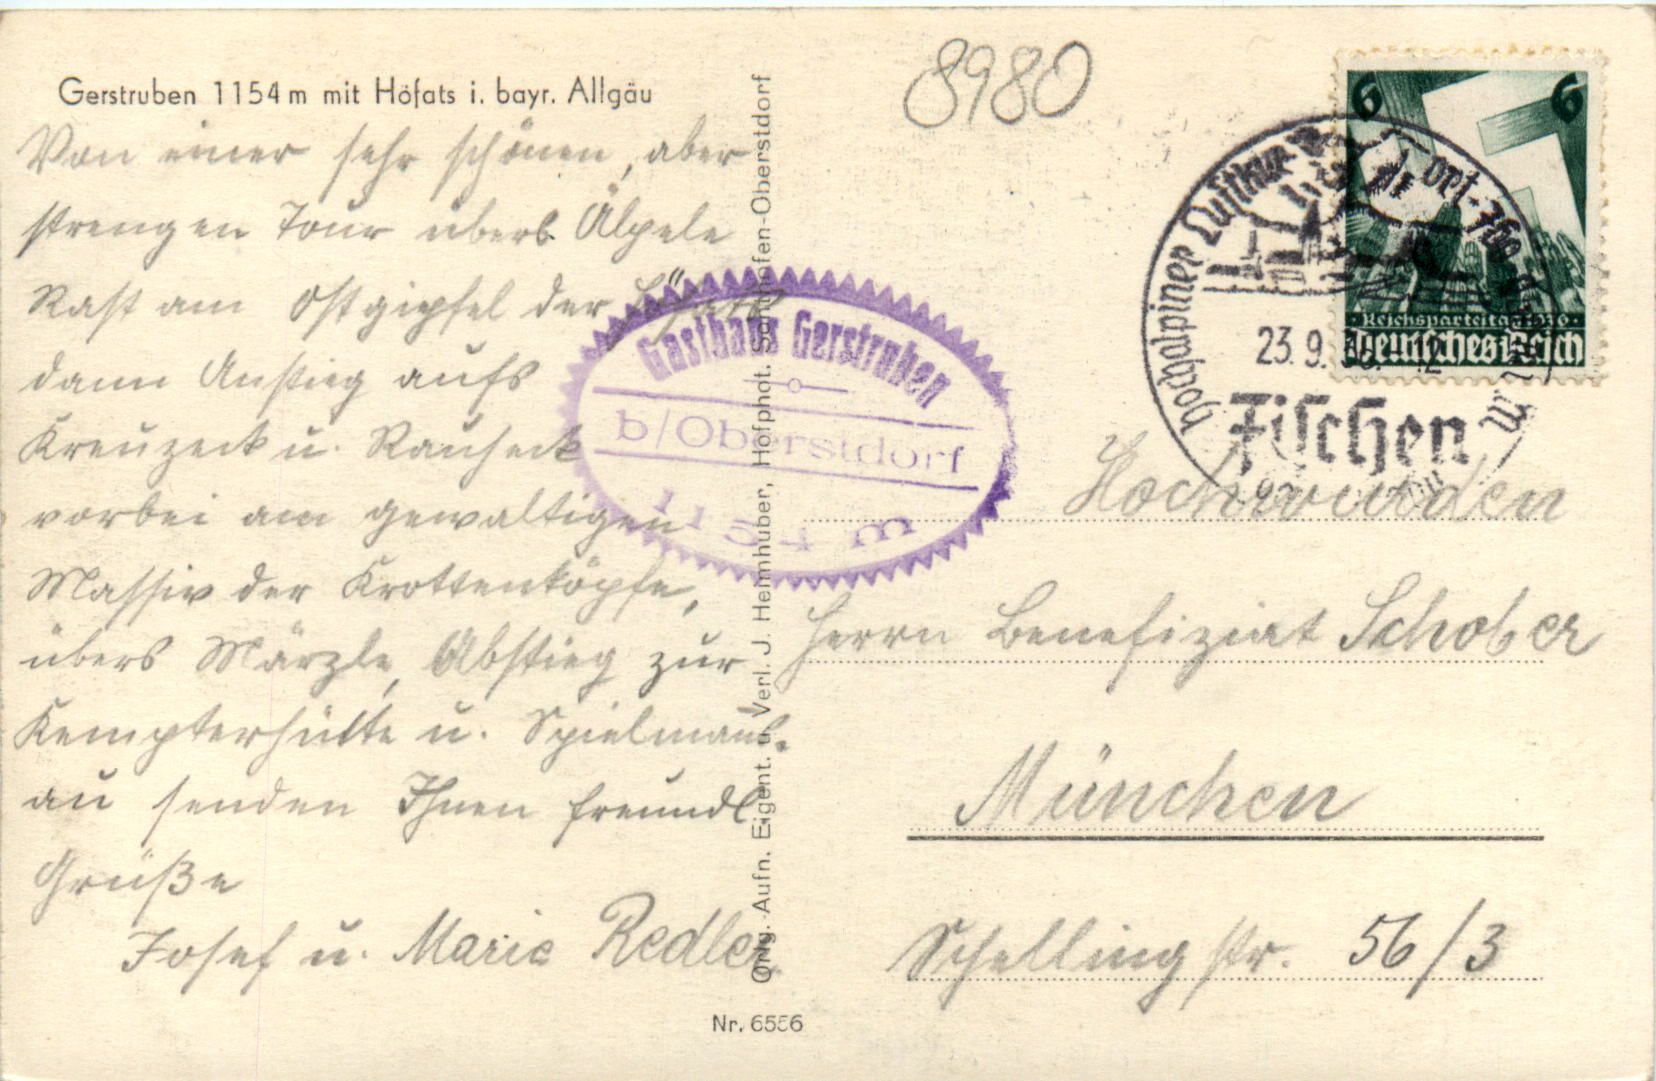 Gerstruben 1154 m mit Höfats i. bayr. Allgäu
Von einer sehr schönen, aber
strengen Tour übers Älpele
Rast am Ostgipfel der Höfats
dann Anstieg aufs
Kreuzeck u. Rauheck
vorbei am gewaltigen
Massiv der Krottenköpfe,
übers Märzle, Abstieg zur
Kempterhütte u. Spielmanns-
au senden Ihnen freundl
Grüße
Josef u. Marie Redler
Orig. Aufn. Eigent. u. Verl. J. Heimhuber, Hofphot. Sonthofen-Oberstdorf
Nr. 6556
Gasthaus Gerstruben
b/Oberstdorf
1154 m
8980
6 6
Reichsparteitag 1936
Deutsches Reich
Hochalpiner Luftkur
ort
23.9.36. 12
Fischen
Hochwürden
Herrn Benefiziat Schober
München
Schellingstr. 56/3